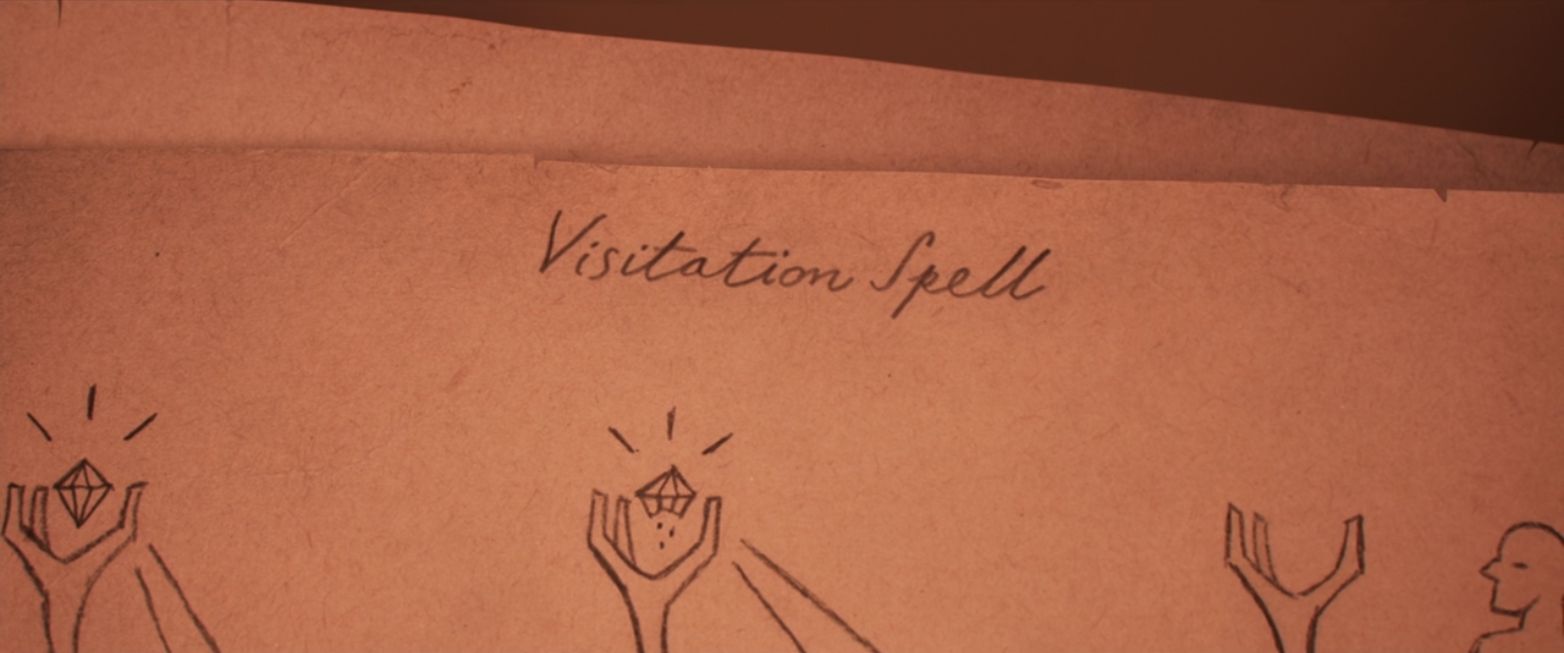 Visitation Spell